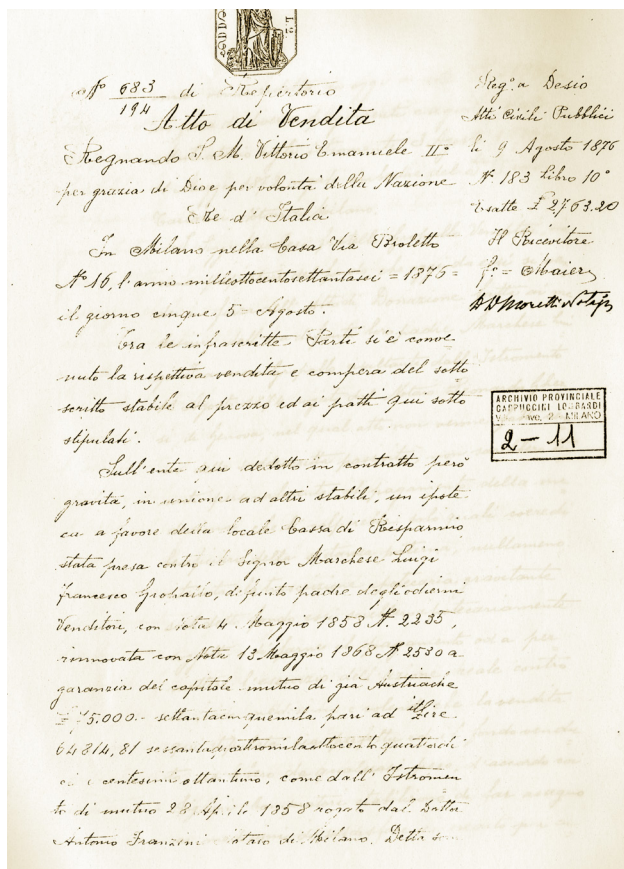 L. 2.
N° 683/194 di Repertorio
Atto di Vendita
Regnando S. M. Vittorio Emanuele II°
per grazia di Dio e per volontà della Nazione
Re d'Italia
In Milano nella Casa Via Broletto
N° 16, l'anno milleottocentosettantasei = 1876 =
il giorno cinque 5 = Agosto.
Tra le infrascritte Parti si è conve
nuto la rispettiva vendita e compera del sotto
scritto stabile al prezzo ed ai patti qui sotto
stipulati.
Sull'ente qui dedotto in contratto però
gravita, in unione ad altri stabile, un ipote
ca a favore della locale Cassa di Risparmio
stata presa contro il Signor Marchese Luigi
Francesco defunto padre degli odierni
Venditori, con nota 4. Maggio 1858 N. 2235,
rinnovata con Nota 13 Maggio 1868 N. 2530 a
garanzia del capitale mutuo di già Austriache
75.000.- settantacinquemila pari ad it. Lire
64814,81 sessantaquattromilaottocentoquattordi
ci e centesimi ottantuno, come dall'Istromen
to di mutuo 28 Aprile 1858 rogato dal Dottor
Antonio Franzini notaio di Milano. Detta
Reg.° a Desio
Atti Civili Pubblici
li 9 Agosto 1876
N. 183 Libro 10°
Esatte £ 2,763.20
Il Ricevitore
f.° = Maier
Moretti
ARCHIVIO PROVINCIALE
CAPPUCCINI LOMBARDI
MILANO
2 - 11